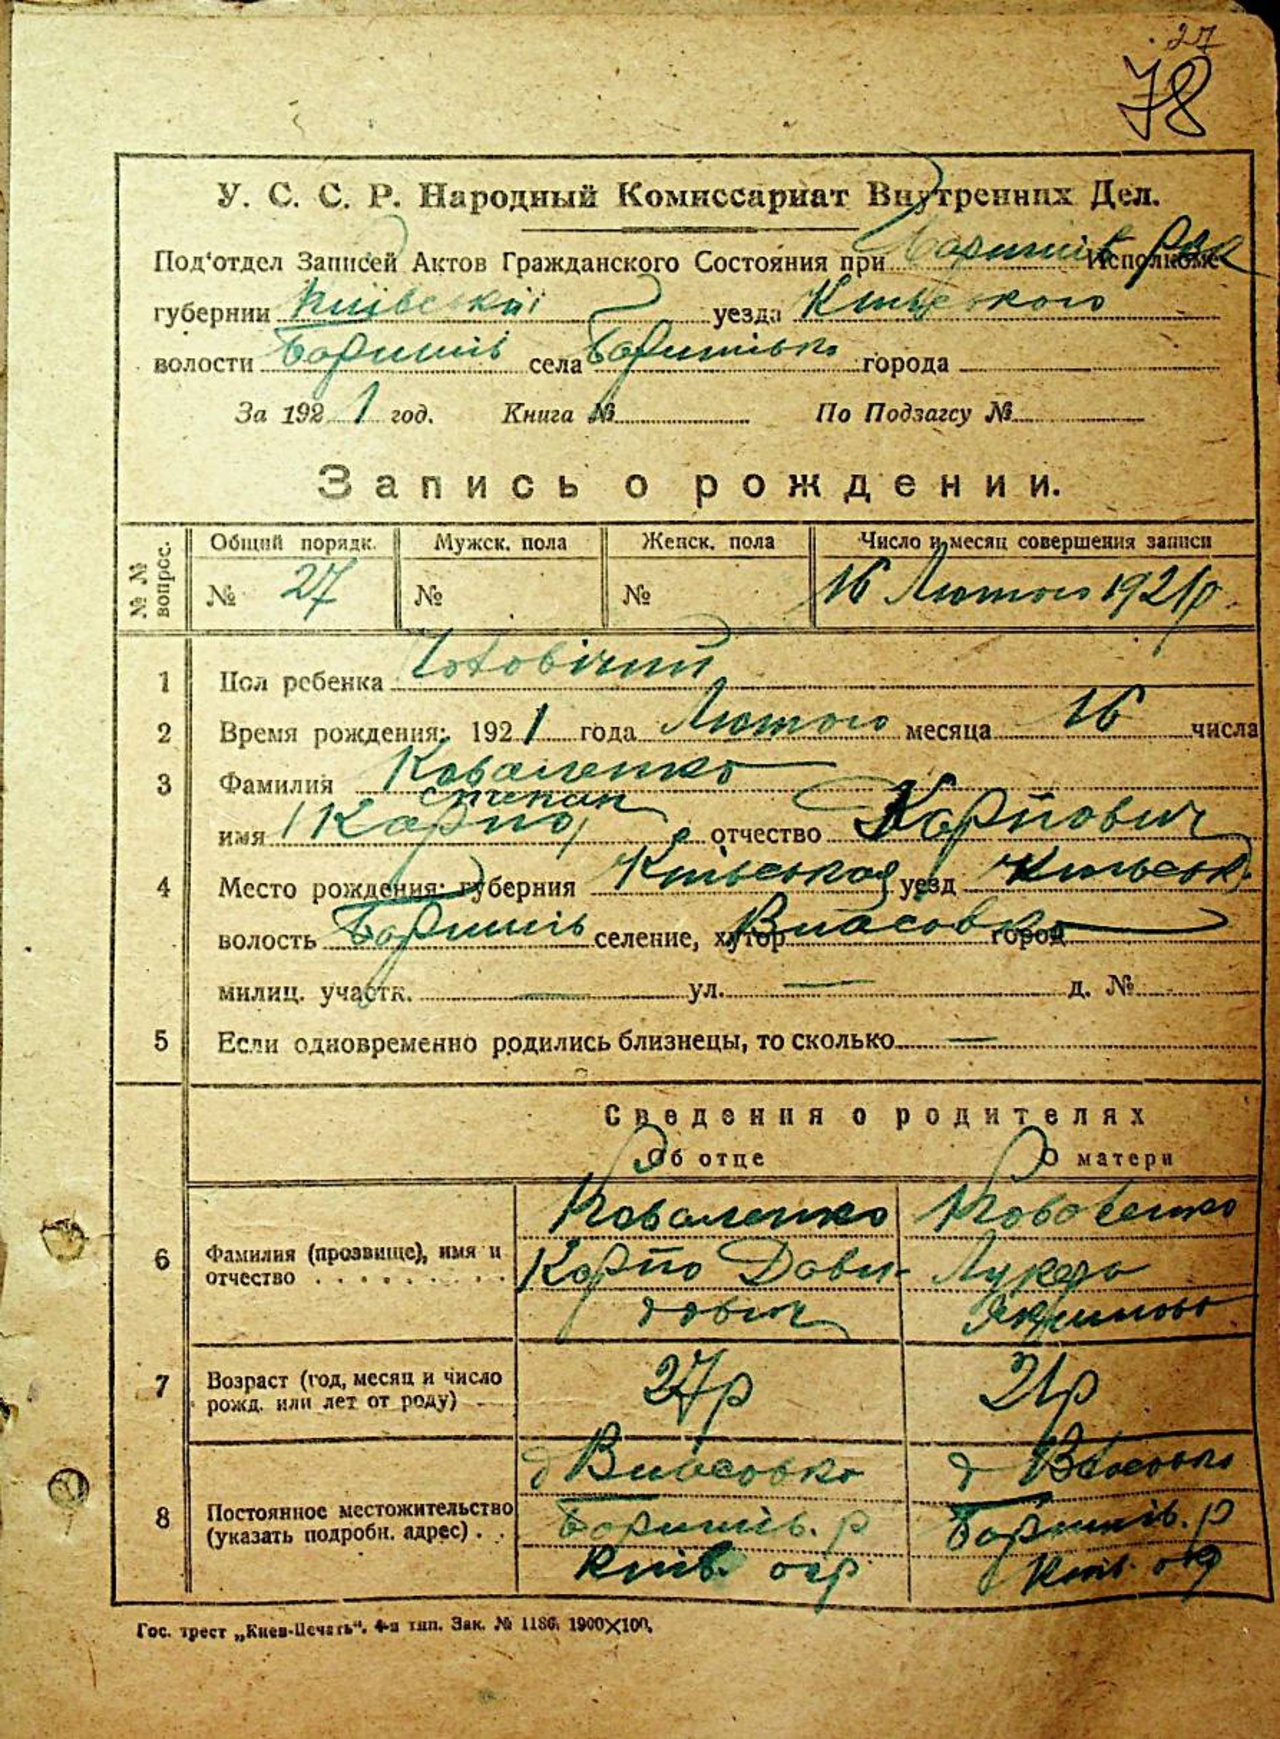 27
78
У. С. С. Р. Народный Комиссариат Внутренних Дел.
Под'отдел Записей Актов Гражданского Состояния при Баришів РВК Исполкоме
губернии Київської уезда Київського
волости Баришів села Баришівка города
За 1921 год. Книга № По Подзагсу №
Запись о рождении.
№ № вопрос. Общий порядк. Мужск. пола Женск. пола Число и месяц совершения записи
№ 27 № № 16 Лютого 1921р
1 Пол ребенка Чоловічий
2 Время рождения: 1921 года Лютого месяца 16 числа
3 Фамилия Коваленко
степан
имя (Карпо) отчество Карпович
4 Место рождения: губерния Київськоя уезд Київськ.
волость Баришів селение, хутор Власовка город
милиц. участк. — ул. — д. №
5 Если одновременно родились близнецы, то сколько —
Сведения о родителях
Об отце О матери
6 Фамилия (прозвище), имя и отчество Коваленко Карпо Давидович Коваленко Лукера Якимова
7 Возраст (год, месяц и число рожд. или лет от роду) 27р 21р
8 Постоянное местожительство (указать подробн. адрес) д Власовка Баришів. р Київ. окр д Власовка Баришів. р Київ. окр
Гос. трест „Киев-Печать“. 4-я тип. Зак. № 1186. 1900×100.